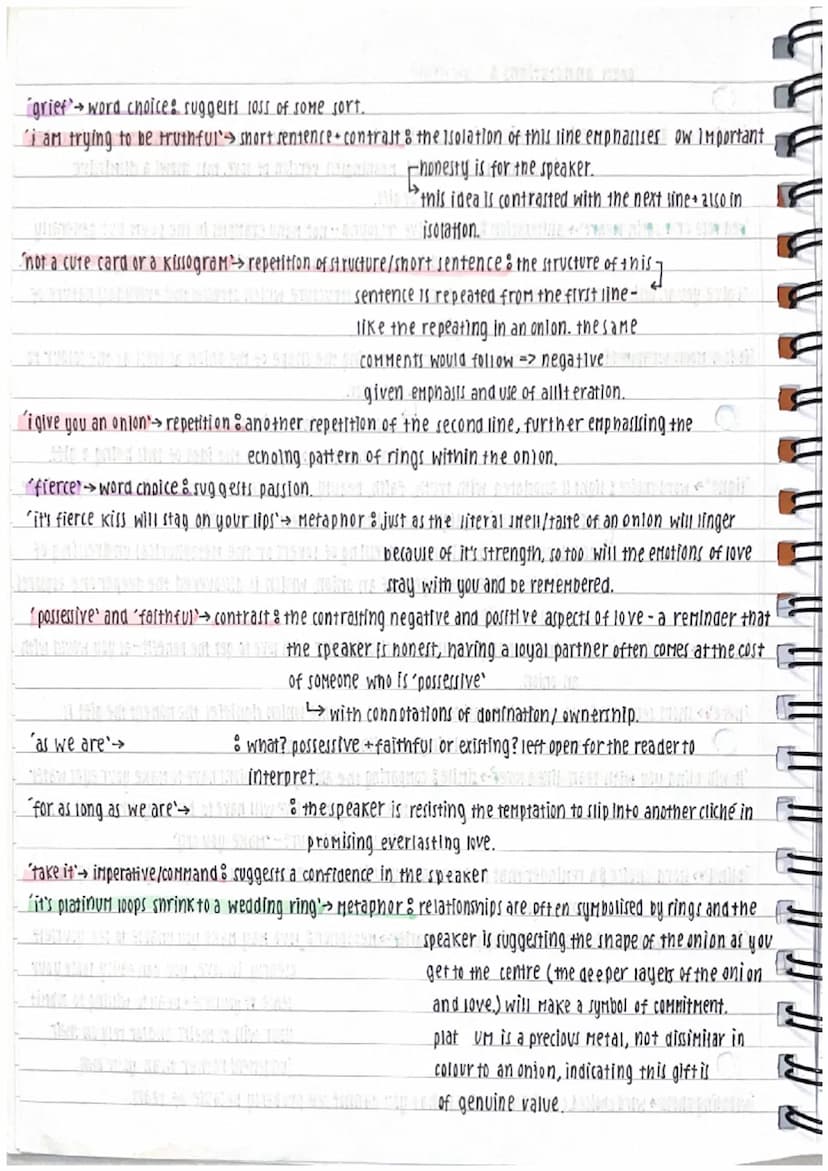 'grief'→ word choice: suggests loss of some sort.
'i am trying to be truthful'→ short sentence + contrast: the isolation of this line emphasises ow important
honesty is for the speaker.
↳ this idea is contrasted with the next line + also in
isolation.
'not a cute card or a kissogram'→ repetition of structure/short sentence: the structure of this
sentence is repeated from the first line-
like the repeating in an onion. the same
comments would follow => negative
given emphasis and use of alliteration.
'i give you an onion'→ repetition: another repetition of the second line, further emphasising the
echoing pattern of rings within the onion.
'fierce'→ word choice: suggests passion.
'it's fierce kiss will stay on your lips'→ metaphor: just as the literal smell/taste of an onion will linger
because of it's strength, so too will the emotions of love
stay with you and be remembered.
'possessive' and 'faithful'→ contrast: the contrasting negative and positive aspects of love - a reminder that
the speaker is honest, having a loyal partner often comes at the cost
of someone who is 'possessive'
↳ with connotations of domination/ownership.
'as we are'→ : what? possessive + faithful or existing? left open for the reader to
interpret.
'for as long as we are'→ : the speaker is resisting the temptation to slip into another cliché in
promising everlasting love.
'take it'→ imperative/command: suggests a confidence in the speaker
'it's platinum loops shrink to a wedding ring'→ metaphor: relationships are often symbolised by rings and the
speaker is suggesting the shape of the onion as you
get to the centre (the deeper layers of the onion
and love) will make a symbol of commitment.
plat um is a precious metal, not dissimilar in
colour to an onion, indicating this gift is
of genuine value.